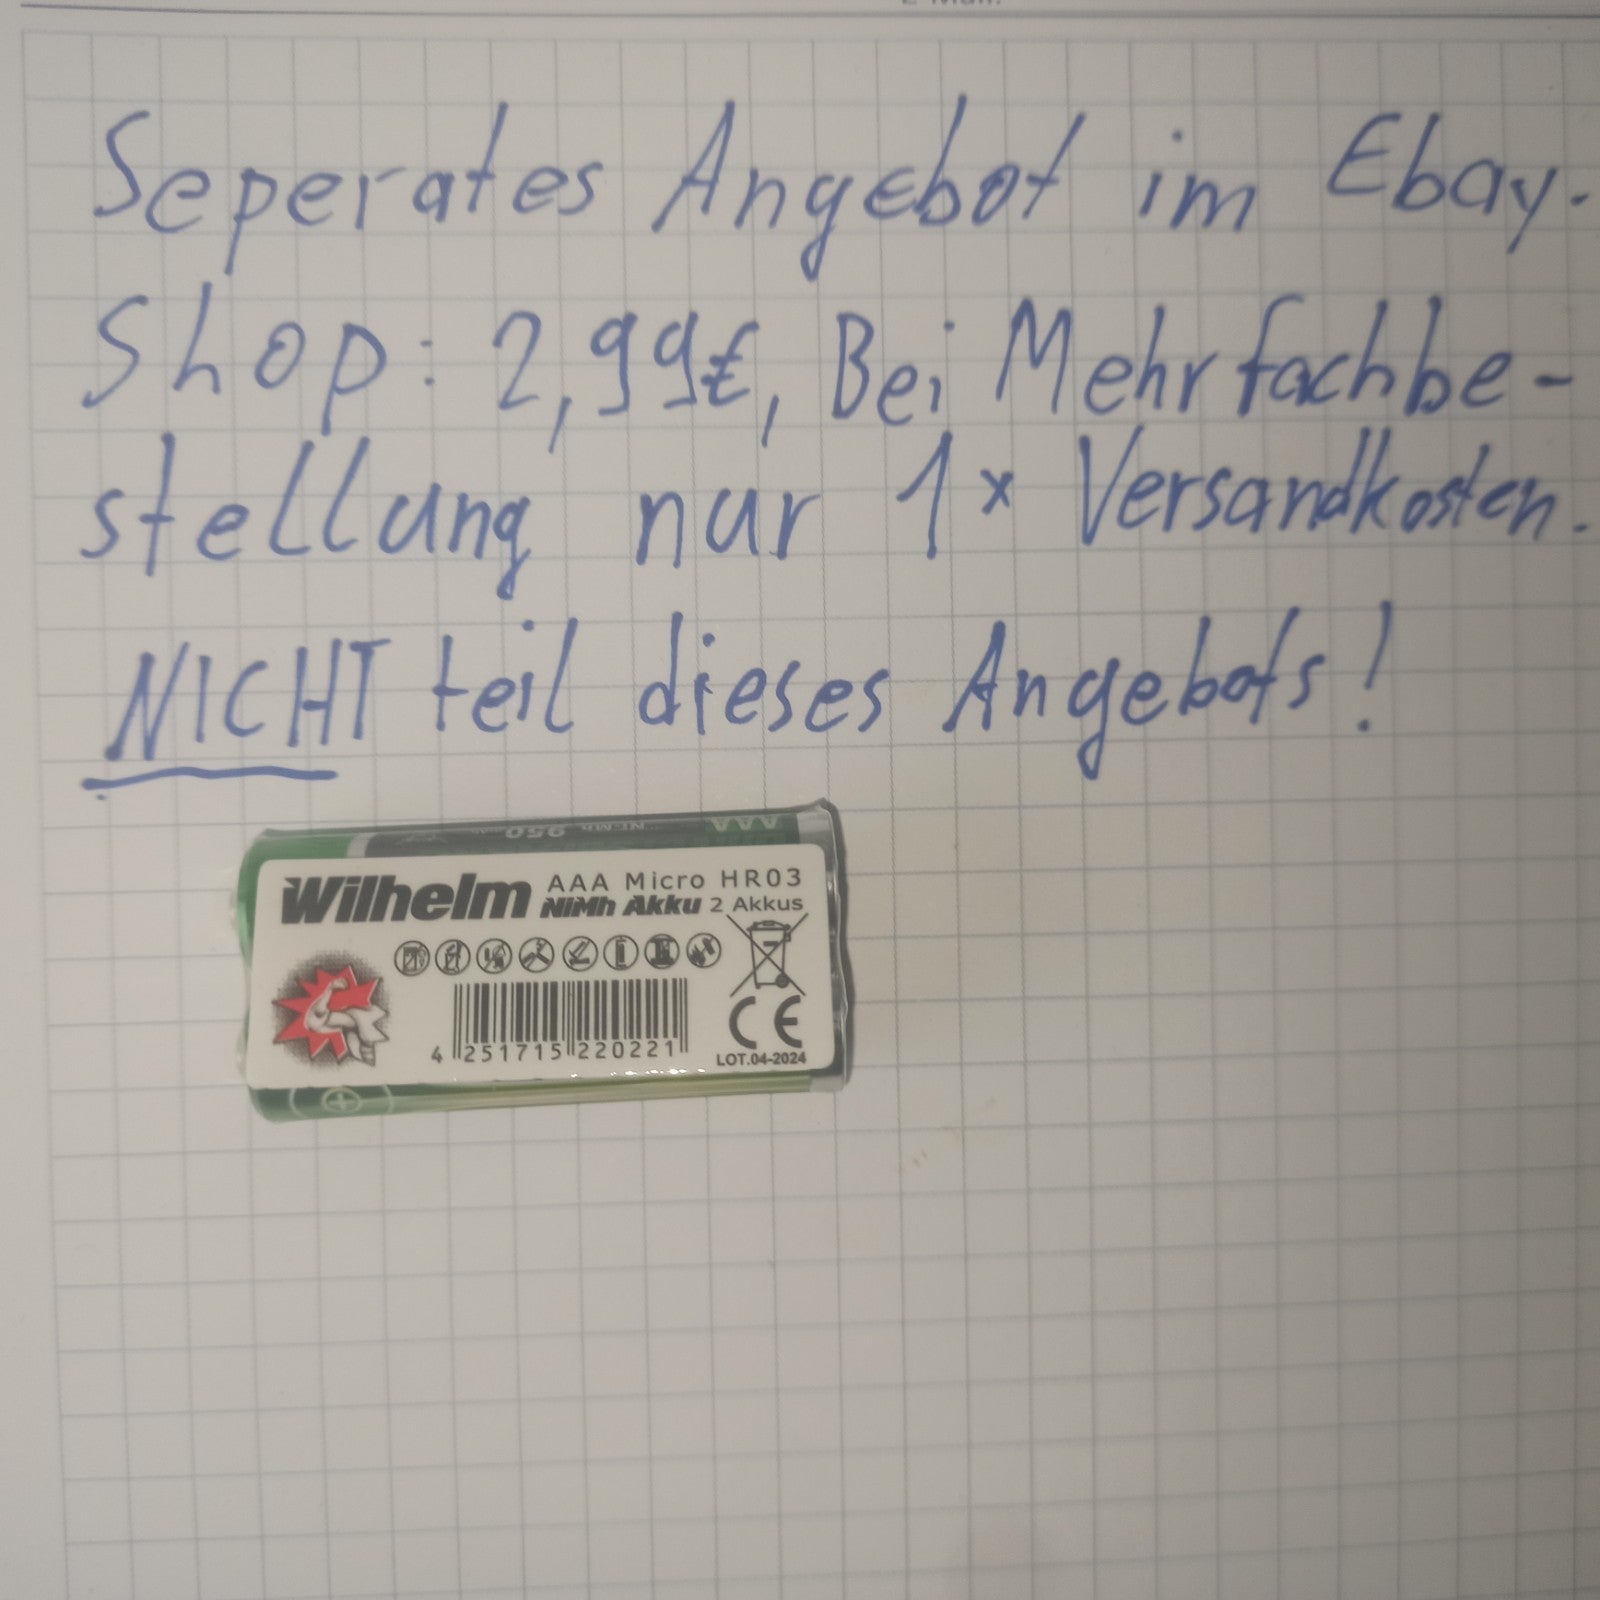 Seperates Angebot im Ebay-
Shop: 2,99€, Bei Mehrfachbe-
stellung nur 1x Versandkosten.
NICHT teil dieses Angebots!
AAA Ni-Mh 950
Wilhelm AAA Micro HR03
NiMh Akku 2 Akkus
CE
4 251715 220221
LOT.04-2024